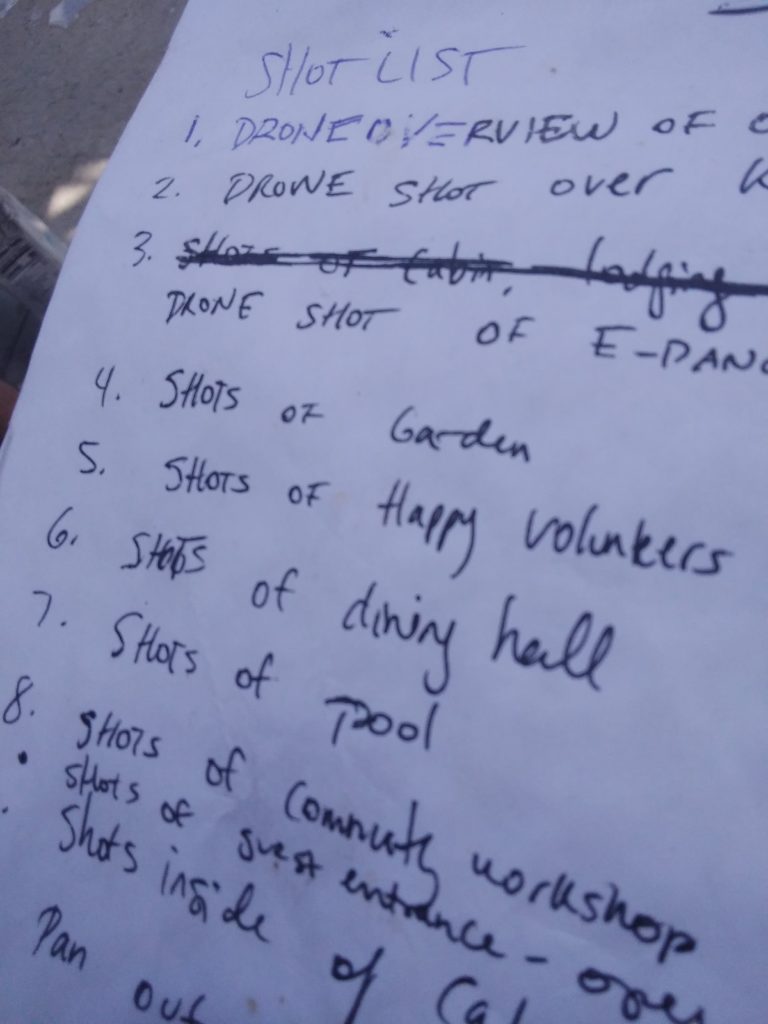 SHOT LIST
1. DRONE OVERVIEW OF
2. DRONE SHOT over
3. SHOTS OF Cabin, lodging
DRONE SHOT OF E-DANC
4. SHOTS OF Garden
5. SHOTS OF Happy volunkers
6. SHOTS of dining hall
7. SHOTS of Pool
8. SHOTS of Commuty workshop
• SHots OF guest entrance - open
• Shots inside of Cab
Pan out